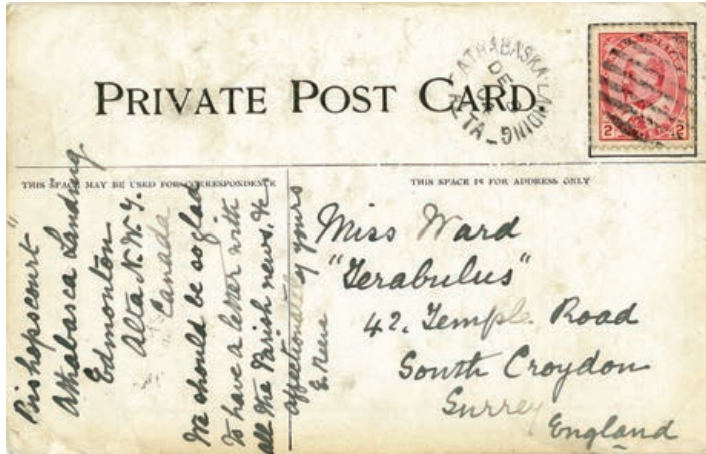 PRIVATE POST CARD.
ATHABASKA LANDING
DE
ALTA
2 2
THIS SPACE MAY BE USED FOR CORRESPONDENCE
THIS SPACE IS FOR ADDRESS ONLY
"Bishopscourt"
Athabasca Landing
Edmonton
Alta N.W.T.
Canada
We should be so glad
to have a letter with
all the Parish news. &
affectionately yours
Miss Ward
"Terabulus"
42. Temple Road
South Croydon
Surrey
England